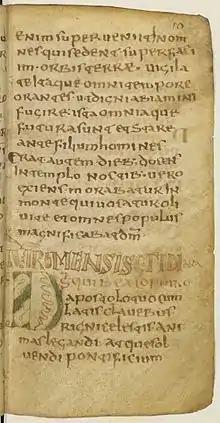 10
enim superveniet in om
nes qui sedent super faci
em orbis terræ vigila
te itaque omni tempore
orantes ut digni habiamini
fugire ista omnia quæ
futura sunt et stare
ante filium hominis
Erat autem dieb· docens
in templo noctib· vero
exiens morabatur in
monte qui vocatur oli
vite et omnes populus
magnificabat dm
MENSIS
D
s qui beato
apostolo tuo con
latis clavebus
rigni celestis ani
mas legandi adque sol
vendi pontificium